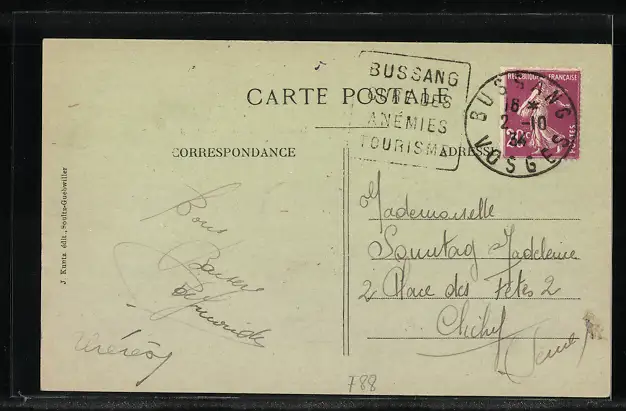 BUSSANG
CURE DES
ANÉMIES
TOURISME
BUSSANG
18 *
2 -10
34
VOSGES
RÉPUBLIQUE FRANÇAISE
20c
POSTES
CARTE POSTALE
CORRESPONDANCE
ADRESSE
Bons
Baisers
Mademoiselle
Sonntag Madeleine
2 Place des Fêtes 2
Clichy
(Seine)
788
J. Kuntz édit., Soultz-Guebwiller